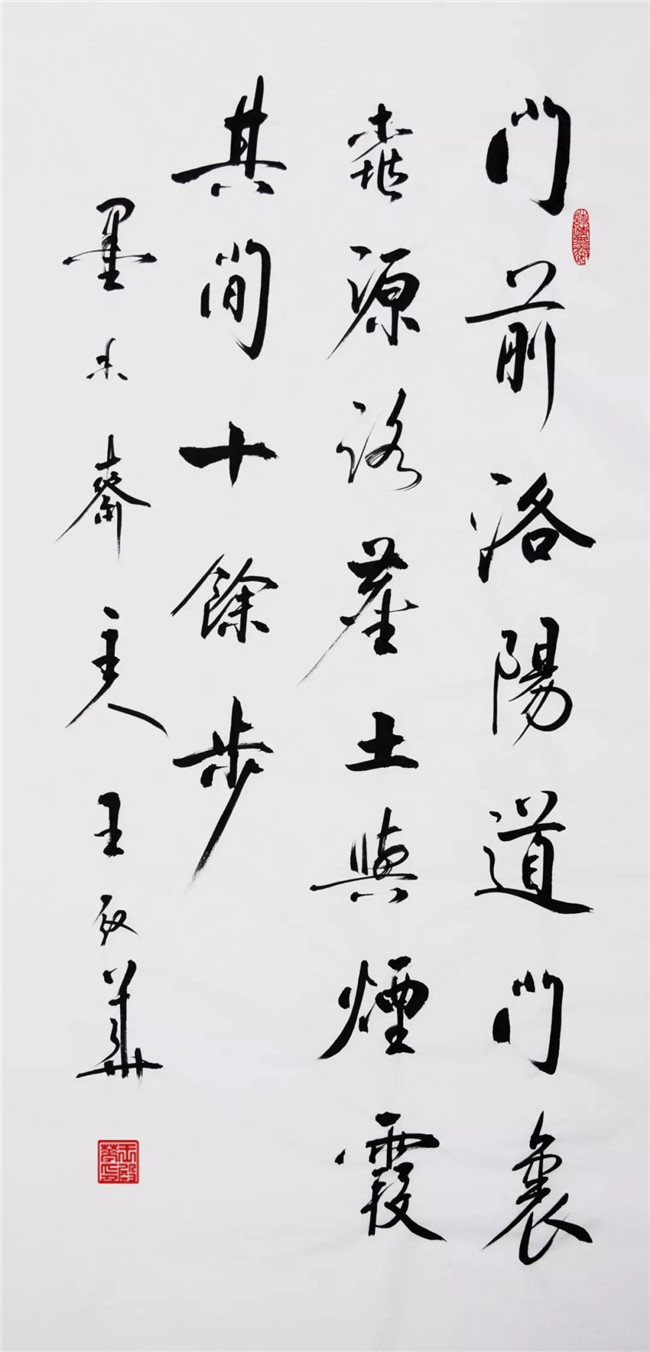 門前洛陽道門裏
桃源路塵土與煙霞
其間十餘步
墨齋主人王華